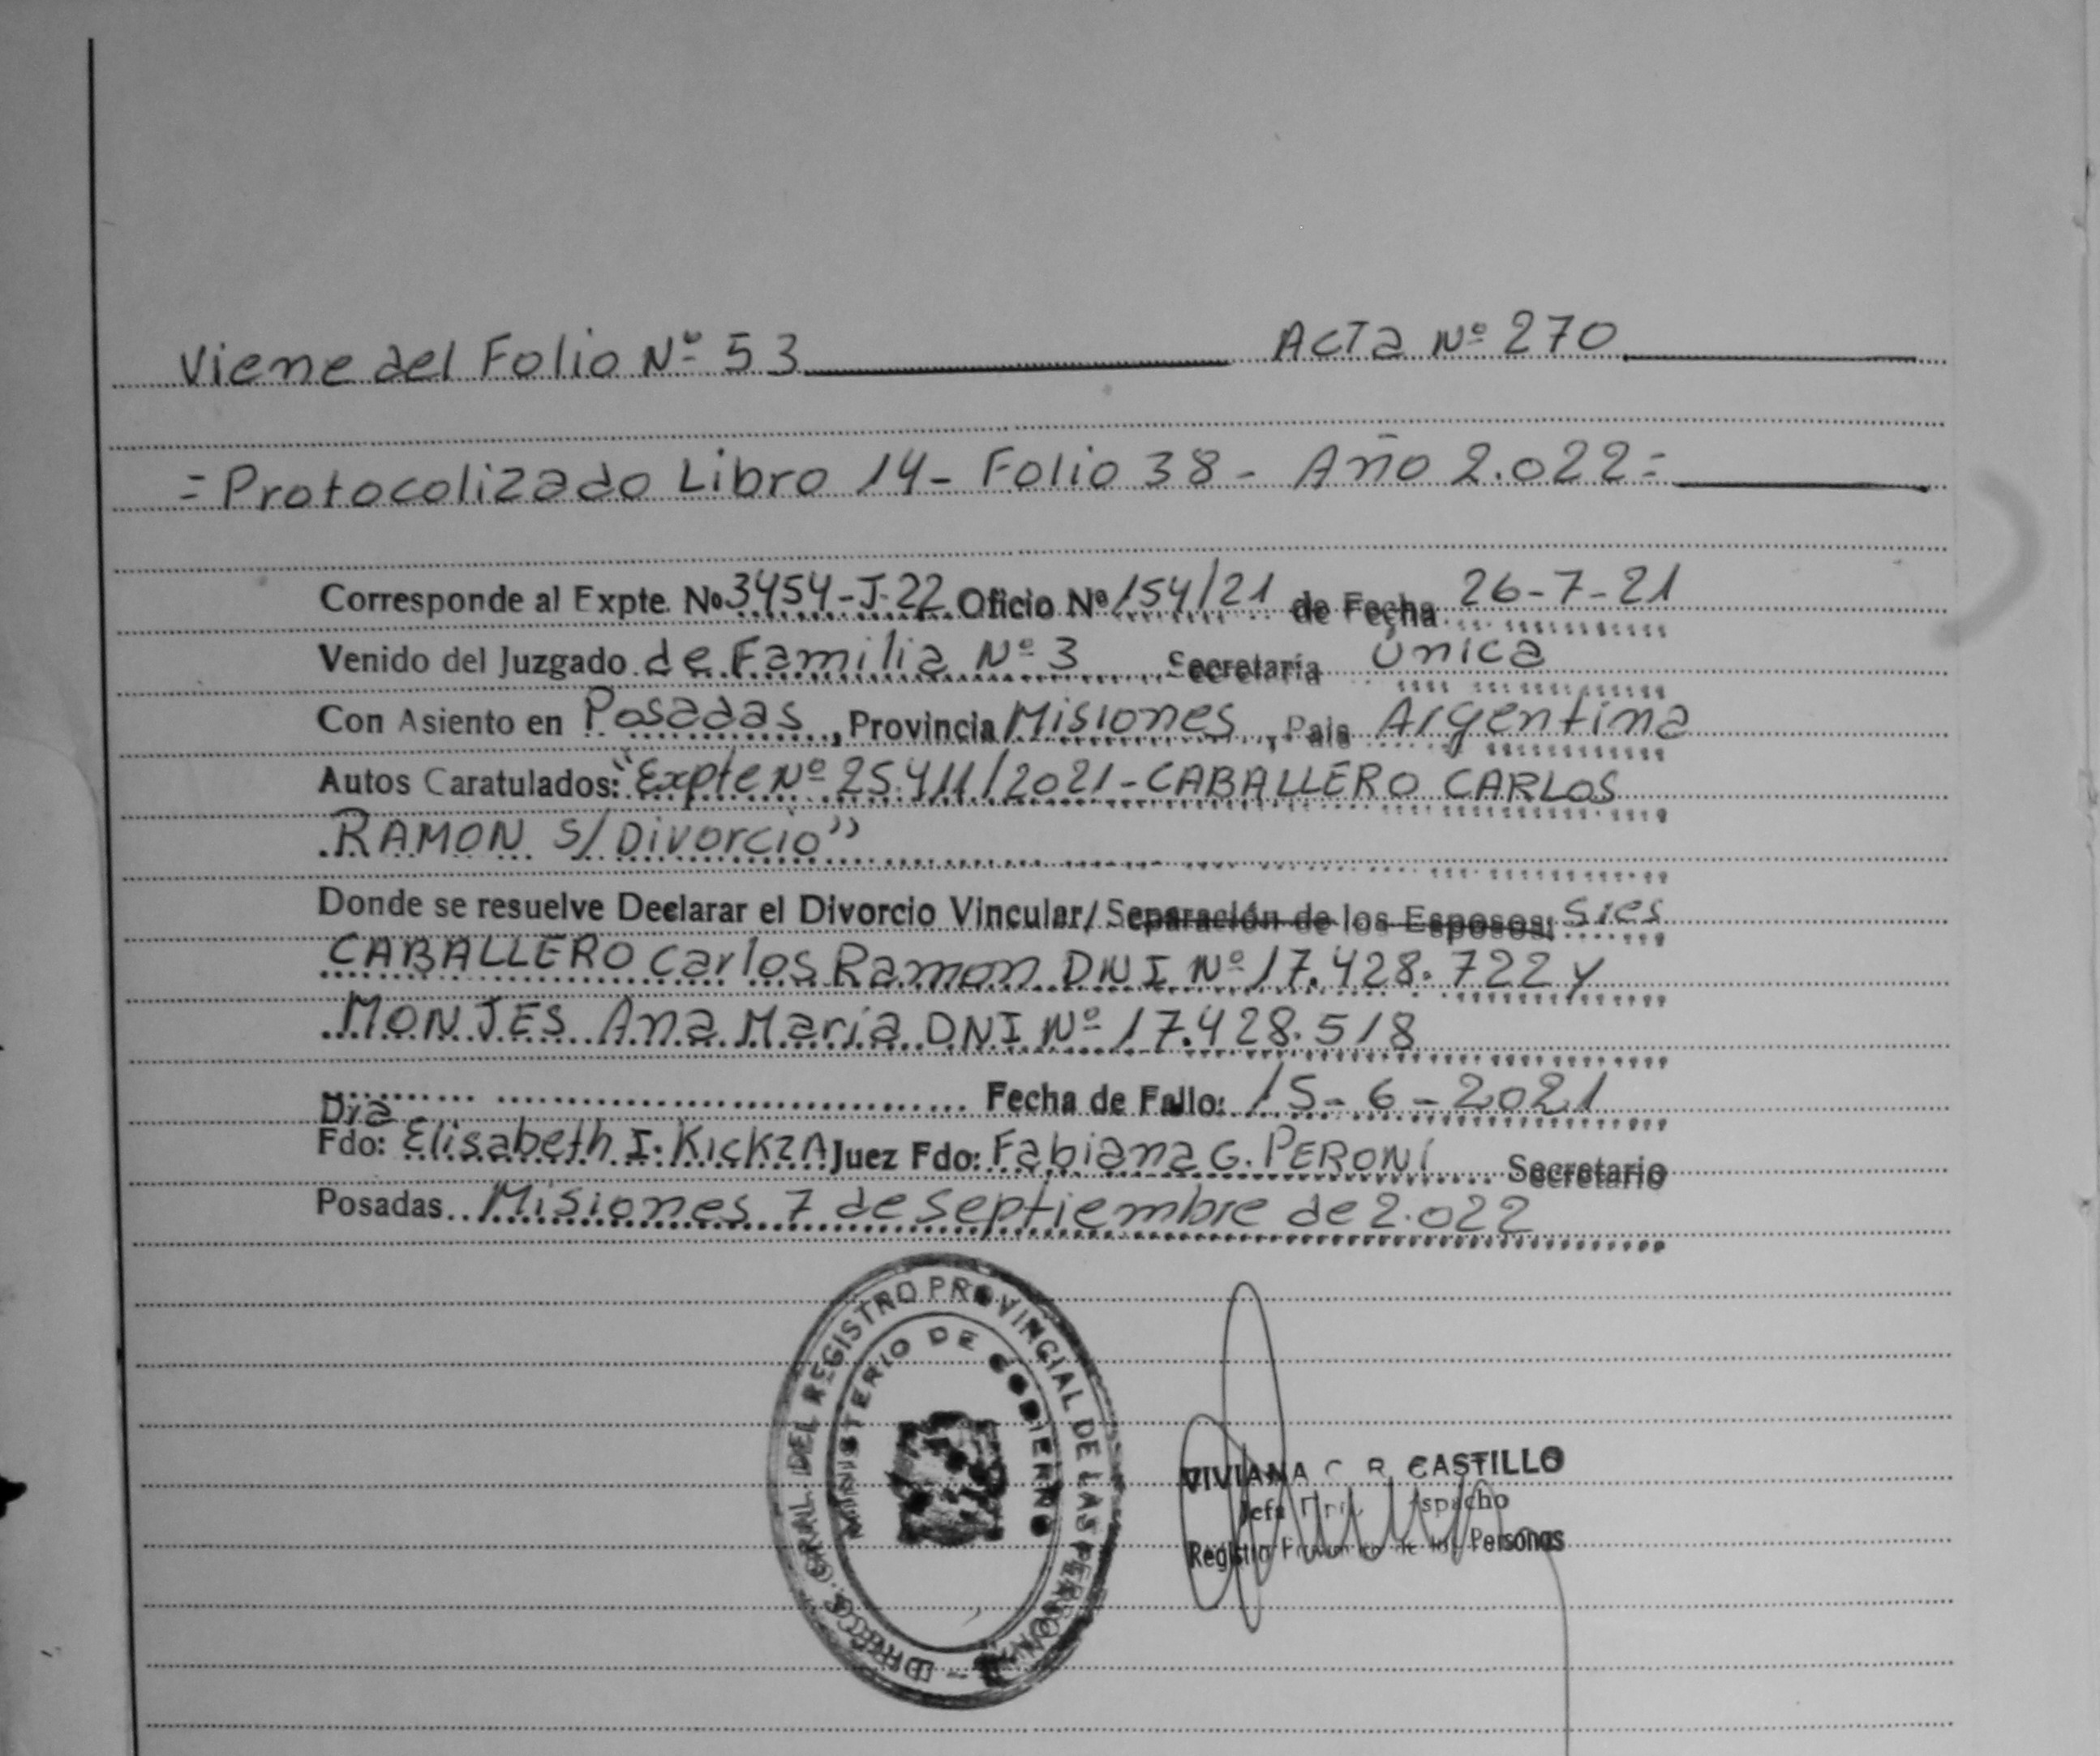 Viene del Folio Nº 53 Acta Nº 270
= Protocolizado Libro 14 - Folio 38 - Año 2.022 =
Corresponde al Expte. Nº 3454-J-22 Oficio Nº 154/21 de Fecha 26-7-21
Venido del Juzgado de Familia Nº 3 Secretaría Única
Con Asiento en Posadas, Provincia Misiones, País Argentina
Autos Caratulados: "Expte Nº 25.411/2021 - CABALLERO CARLOS
RAMON S/ Divorcio"
Donde se resuelve Declarar el Divorcio Vincular/ Separación de los Esposos: Sres
CABALLERO Carlos Ramon DNI Nº 17.428.722 y
MONJES Ana Maria DNI Nº 17.428.518
Fecha de Fallo: 15-6-2021
Dra
Fdo: Elisabeth I. KicKzA Juez Fdo: Fabiana G. PERONI Secretario
Posadas Misiones 7 de septiembre de 2.022
DIRECC. GRAL. DEL REGISTRO PROVINCIAL DE LAS PERSONAS
MINISTERIO DE GOBIERNO
VIVIANA C. R. CASTILLO
Jefa
Registro de las Personas